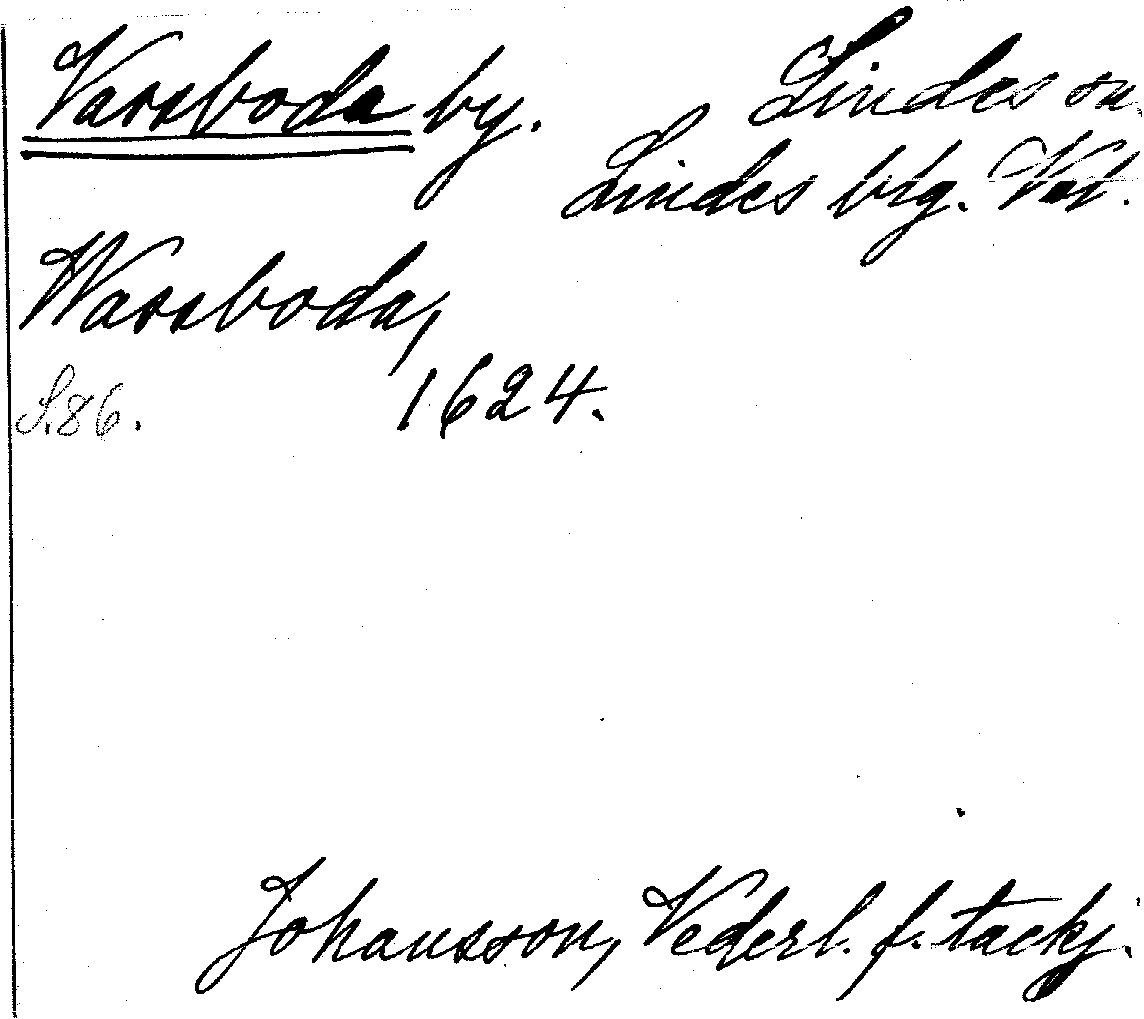 Varsboda by. Lindes sn.
Lindes btg. Vstl.
Warsboda,
S.86. 1624.
Johansson, Vederl. f. tackj.